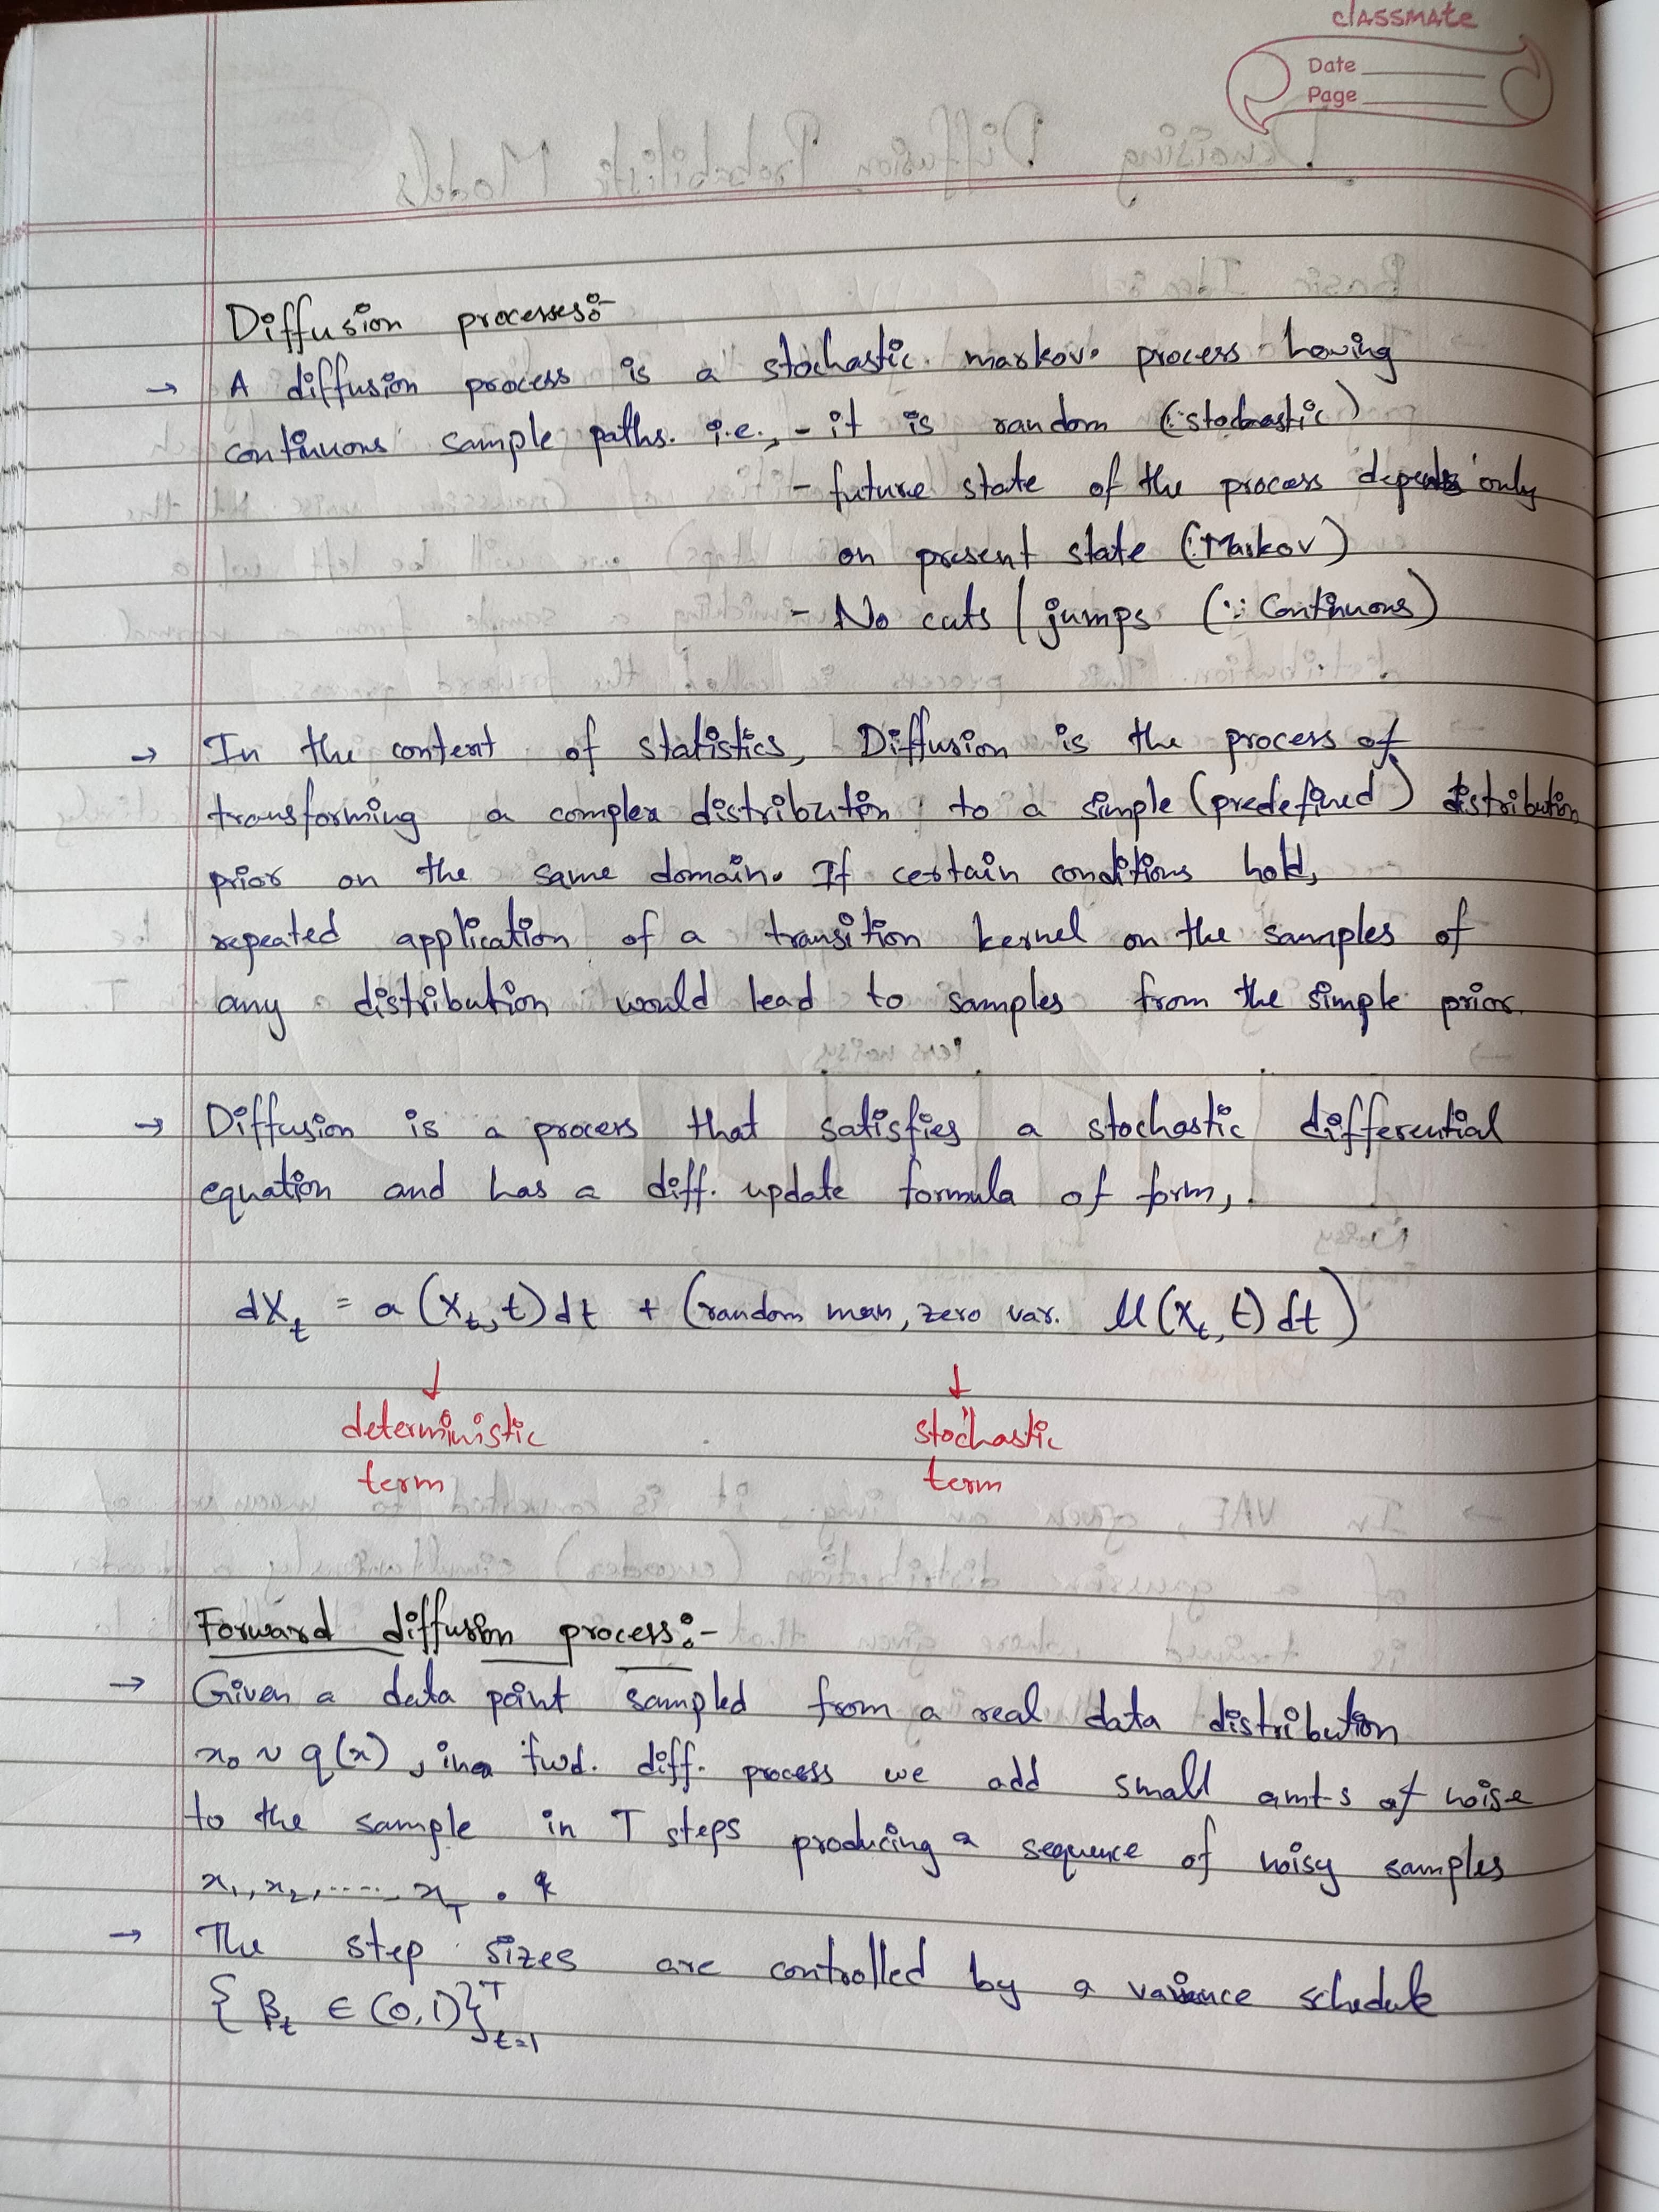 classmate
Date
Page
Diffusion processes:-
→ A diffusion process is a stochastic markov process having
continuous sample paths. i.e., - it is random (∵ stochastic)
- future state of the process depends only
on present state (∵ Markov)
- No cuts / jumps (∵ Continuous)
→ In the context of statistics, Diffusion is the process of
transforming a complex distribution to a simple (predefined) distribution
prior on the same domain. If certain conditions hold,
repeated application of a transition kernel on the samples of
any distribution would lead to samples from the simple prior.
→ Diffusion is a process that satisfies a stochastic differential
equation and has a diff. update formula of form,
dX_t = a(X_t, t)dt + (random mean, zero var. U(X_t, t)dt)
↓ ↓
deterministic stochastic
term term
Forward diffusion process:-
→ Given a data point sampled from a real data distribution
x₀ ~ q(x), in a fwd. diff. process we add small amts of noise
to the sample in T steps producing a sequence of noisy samples
x₁, x₂, ..... x_T .
→ The step sizes are controlled by a variance schedule
{β_t ∈ (0,1)}ᵀ_t=1